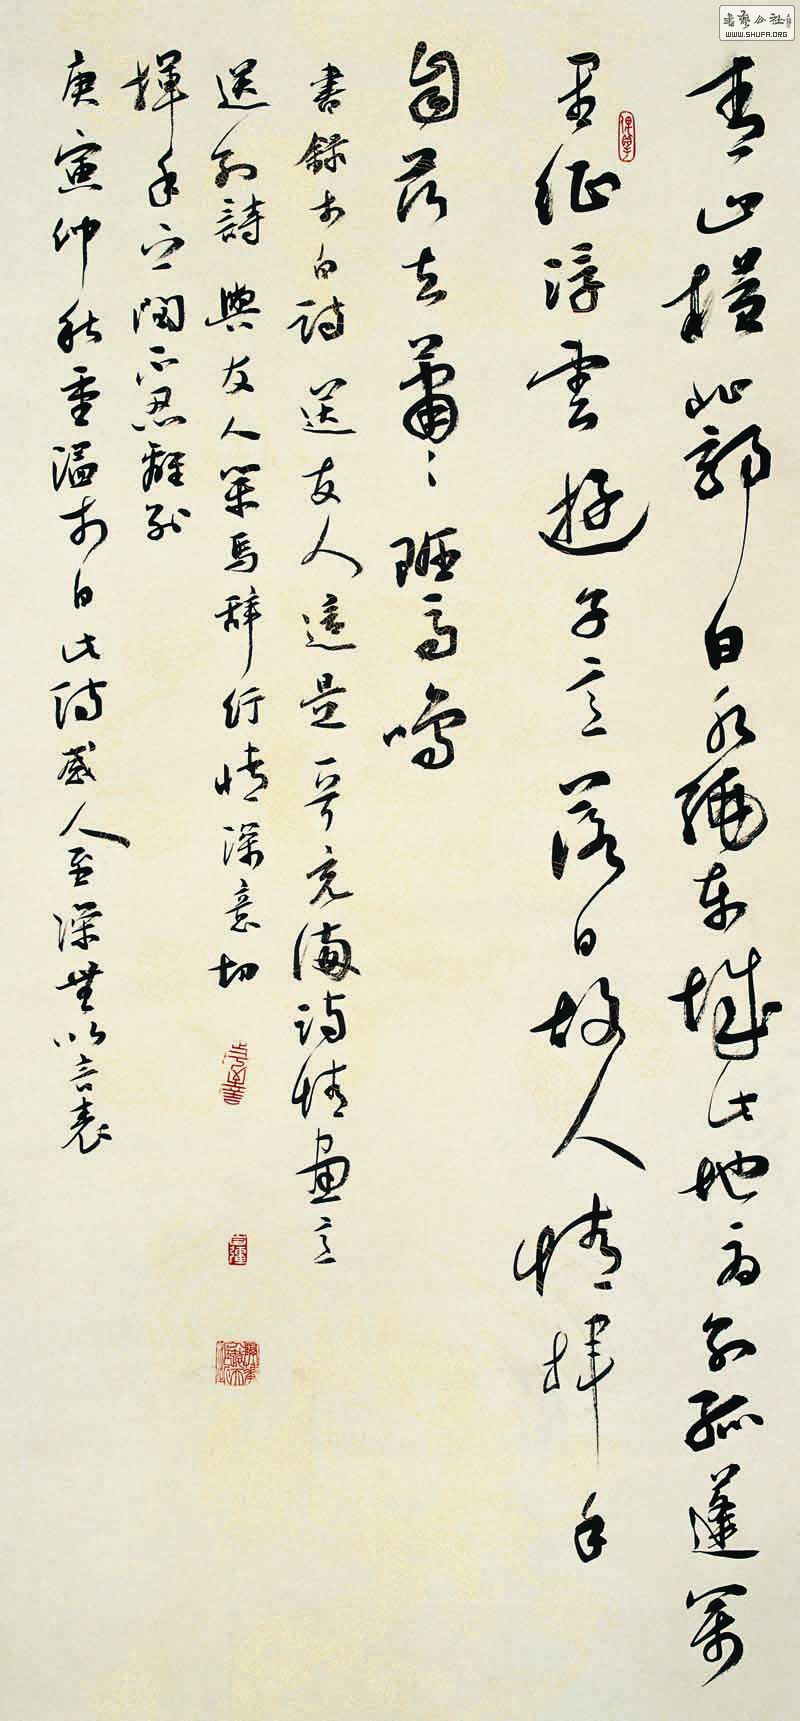 書藝公社
WWW.SHUFA.ORG
青山橫北郭白水繞東城此地為別孤蓬萬
里征浮雲遊子意落日故人情揮手
自茲去蕭〻班馬鳴
書錄李白詩送友人這是一首充滿詩情畫意
送別詩與友人策馬辭行情深意切
揮手之間不忍離別
庚寅仲秋重溫李白此詩感人至深無以言表